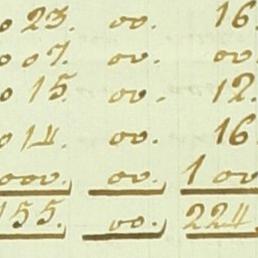 o 23. oo. 16.
o o 7. oo. oo.
o 15. oo. 12.
o 14. oo. 16
ooo. oo. 1 oo
155. oo. 224.